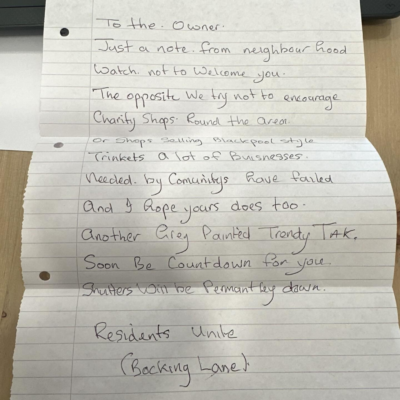 To the. Owner.
Just a note. from neighbour hood
Watch. not to Welcome you.
The opposite We try not to encourage
Charity Shops. Round the area.
Or Shops Selling Blackpool style
Trinkets a lot of Buisnesses.
Needed. by Comunitys have failed
And I hope yours does too.
Another Grey Painted Trendy TAK.
Soon Be Countdown for you.
Shutters Will be Permantley down.
Residents Unite
(Bocking Lane).